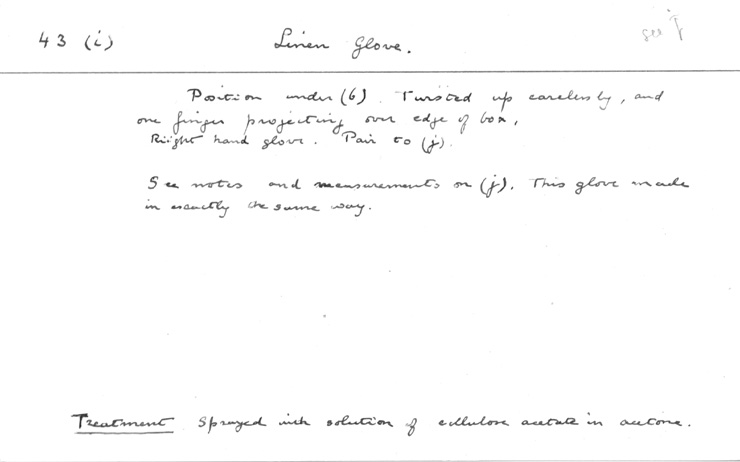 43 (i) Linen Glove. see j
Position under (b). Twisted up carelessly, and
one finger projecting over edge of box,
Right hand glove. Pair to (j).
See notes and measurements on (j). This glove made
in exactly the same way.
Treatment Sprayed with solution of cellulose acetate in acetone.